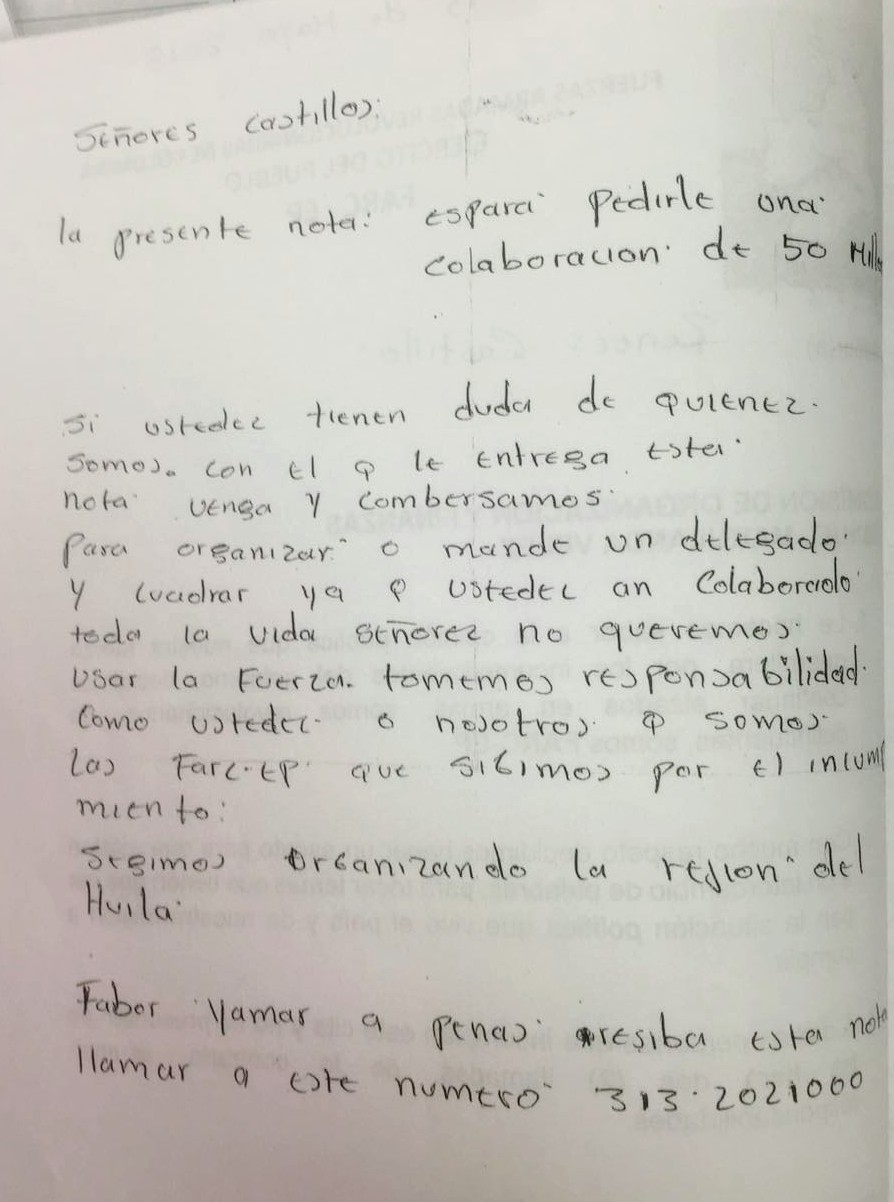 Señores Castillos:
la presente nota: espara pedirle una
colaboracion de 50 Mill
Si ustedez tienen duda de quienez
Somos. con el q le entrega esta
nota venga y combersamos
para organizar o mande un delegado
y cuadrar ya q ustedez an Colaborado
toda la vida señorez no queremos
usar la Fuerza. tomemos responsabilidad
como ustedez o nosotros q somos
las Farc-EP que sigimos por el incum
miento:
segimos organizando la region del
Huila
Fabor yamar a penas resiba esta nota
llamar a este numero 313.2021000
FUERZAS ARMADAS REVOLUCIONARIAS DE COLOMBIA
EJERCITO DEL PUEBLO
FARC-EP